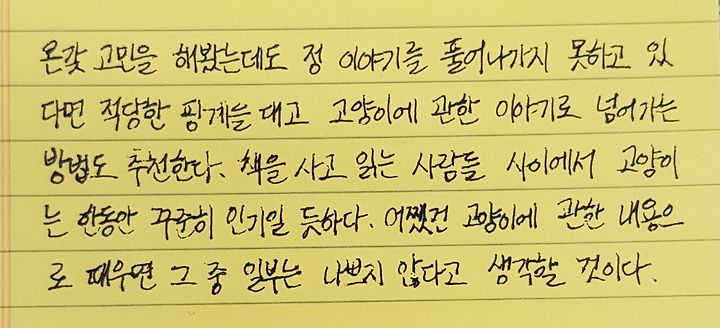 온갖 고민을 해봤는데도 정 이야기를 풀어나가지 못하고 있
다면 적당한 핑계를 대고 고양이에 관한 이야기로 넘어가는
방법도 추천한다. 책을 사고 읽는 사람들 사이에서 고양이
는 한동안 꾸준히 인기일 듯하다. 어쨌건 고양이에 관한 내용으
로 때우면 그 중 일부는 나쁘지 않다고 생각할 것이다.